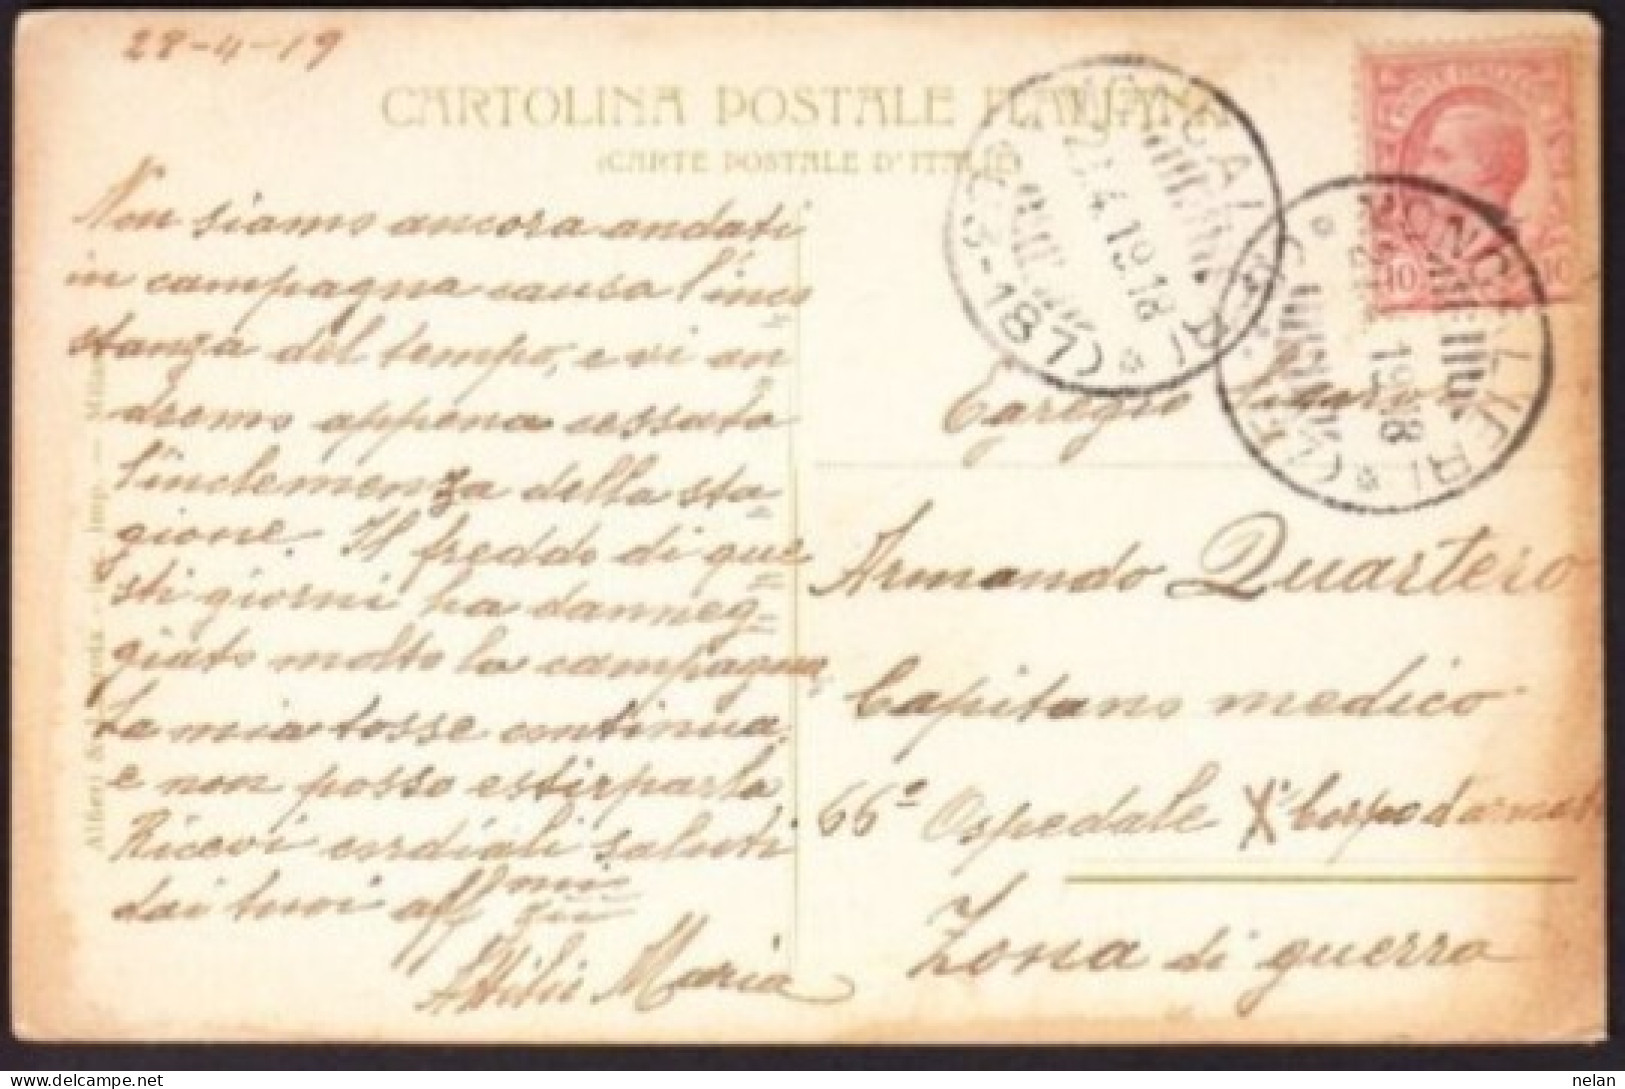 28-4-19
CARTOLINA POSTALE ITALIANA
(CARTE POSTALE D'ITALIE)
Non siamo ancora andati
in campagna causa l'inco
stanza del tempo, e vi an
dremo appena cessata
l'inclemenza della sta
gione. Il freddo di que
sti giorni ha danneg
giato molto la campagna,
La mia tosse continua,
e non posso estirparla
Ricevi cordiali saluti
dai tuoi aff mi
zii
Attilio Maria
MONCALIERI
MONCALIERI
1918
Egregio Signor
Armando Quartero
Capitano medico
66° Ospedale X° Corpo d'armat
Zona di guerra
10
10
Alfieri & Lacroix
Imp. — Milano
nelan